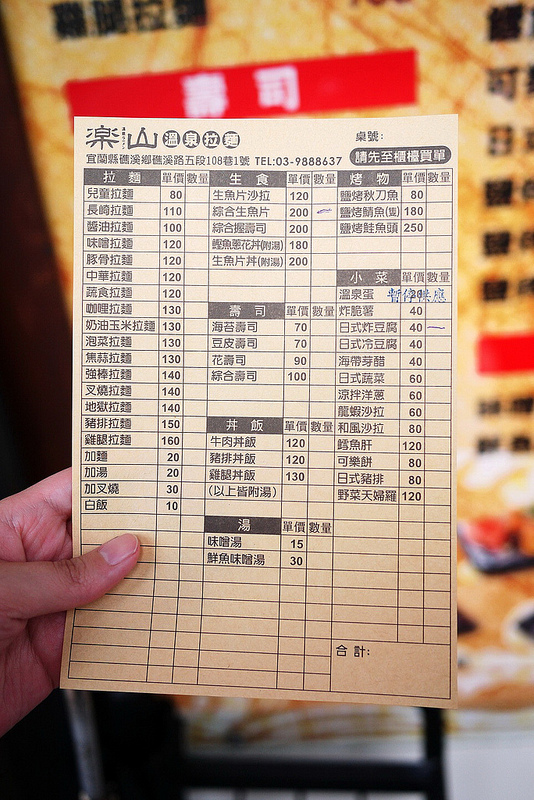 壽司
楽山 溫泉拉麵
桌號:
宜蘭縣礁溪鄉礁溪路五段108巷1號 TEL:03-9888637
請先至櫃檯買單
拉麵 單價 數量
兒童拉麵 80
長崎拉麵 110
醬油拉麵 100
味噌拉麵 120
豚骨拉麵 120
中華拉麵 120
蔬食拉麵 120
咖哩拉麵 130
奶油玉米拉麵 130
泡菜拉麵 130
焦蒜拉麵 130
強棒拉麵 140
叉燒拉麵 140
地獄拉麵 140
豬排拉麵 150
雞腿拉麵 160
加麵 20
加湯 20
加叉燒 30
白飯 10
生食 單價 數量
生魚片沙拉 120
綜合生魚片 200
綜合握壽司 200
鰹魚蔥花丼(附湯) 180
生魚片丼(附湯) 200
壽司 單價 數量
海苔壽司 70
豆皮壽司 70
花壽司 90
綜合壽司 100
丼飯 單價 數量
牛肉丼飯 120
豬排丼飯 120
雞腿丼飯 130
(以上皆附湯)
湯 單價 數量
味噌湯 15
鮮魚味噌湯 30
烤物 單價 數量
鹽烤秋刀魚 80
鹽烤鯖魚(隻) 180
鹽烤鮭魚頭 250
小菜 單價 數量
溫泉蛋 20 暫停供應
炸脆薯 40
日式炸豆腐 40
日式冷豆腐 40
海帶芽醋 40
日式蔬菜 60
涼拌洋蔥 60
龍蝦沙拉 60
和風沙拉 80
鱈魚肝 120
可樂餅 80
日式豬排 80
野菜天婦羅 120
合計: